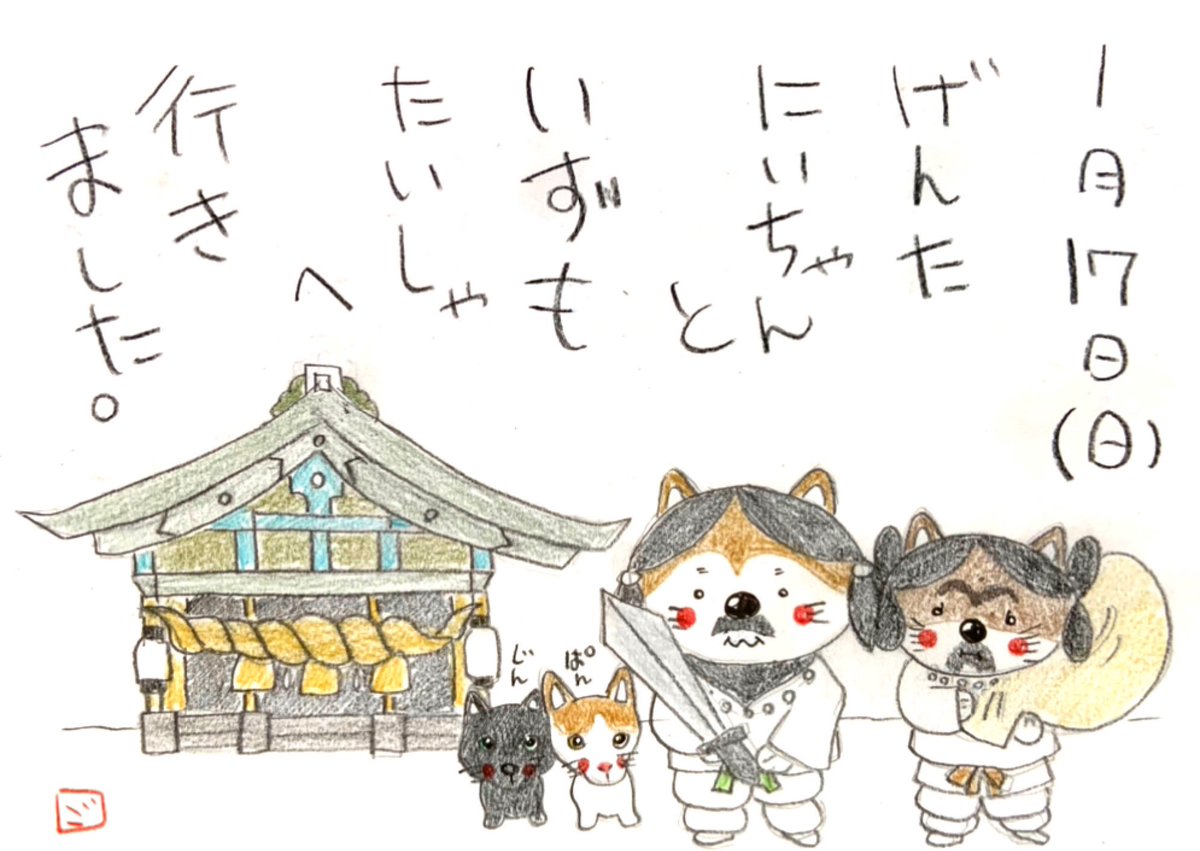 1月17日(日)
げんた
にいちゃん
と
いずも
たいしゃ
へ
行き
ました。
じん
ぱん